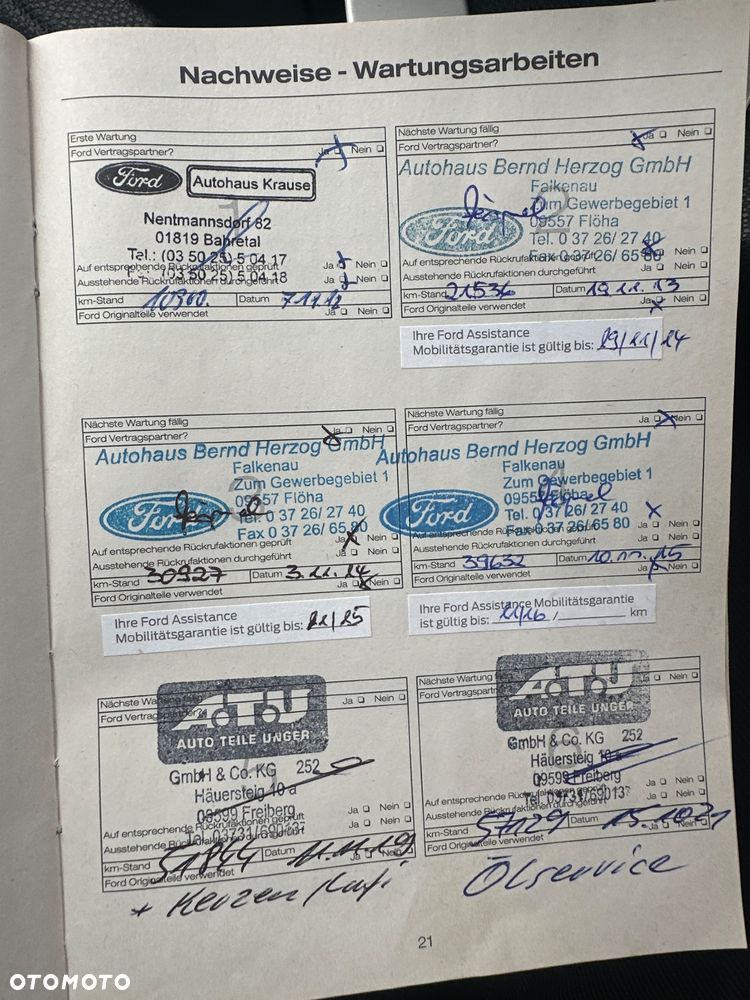 Nachweise - Wartungsarbeiten
Erste Wartung
Ford Vertragspartner? Ja Nein
Ford
Autohaus Krause
1
Nentmannsdorf 82
01819 Bahretal
Tel.: (03 50 25) 5 04 17
(03 50 25) 5 04 18
Auf entsprechende Rückrufaktionen geprüft Ja Nein
Ausstehende Rückrufaktionen durchgeführt Ja Nein
km-Stand Datum
Ford Originalteile verwendet Ja Nein
Nächste Wartung fällig
Ford Vertragspartner? Ja Nein
Autohaus Bernd Herzog GmbH
2
Falkenau
Zum Gewerbegebiet 1
09557 Flöha
Ford
Tel. 0 37 26/ 27 40
Fax 0 37 26/ 65 80
Auf entsprechende Rückrufaktionen geprüft Nein
Ausstehende Rückrufaktionen durchgeführt Ja Nein
km-Stand 21536 Datum
Ford Originalteile verwendet Ja Nein
Ihre Ford Assistance
Mobilitätsgarantie ist gültig bis:
Nächste Wartung fällig
Ford Vertragspartner? Ja Nein
Autohaus Bernd Herzog GmbH
3
Falkenau
Zum Gewerbegebiet 1
09557 Flöha
Ford
Tel. 0 37 26/ 27 40
Fax 0 37 26/ 65 80
Auf entsprechende Rückrufaktionen geprüft Ja Nein
Ausstehende Rückrufaktionen durchgeführt Nein
km-Stand 30927 Datum 3.11.14
Ford Originalteile verwendet Ja Nein
Ihre Ford Assistance
Mobilitätsgarantie ist gültig bis: 11/15
Nächste Wartung fällig
Ford Vertragspartner? Ja Nein
Autohaus Bernd Herzog GmbH
4
Falkenau
Zum Gewerbegebiet 1
09557 Flöha
Ford
Tel. 0 37 26/ 27 40
Fax 0 37 26/ 65 80
Auf entsprechende Rückrufaktionen geprüft Ja Nein
Ausstehende Rückrufaktionen durchgeführt Ja Nein
km-Stand 39632 Datum 10.11.15
Ford Originalteile verwendet Ja Nein
Ihre Ford Assistance Mobilitätsgarantie
ist gültig bis: 11/16 / km
Nächste Wartung fällig
Ford Vertragspartner? Ja Nein
ATU
AUTO TEILE UNGER
GmbH & Co. KG 252
Häuersteig 10 a
09599 Freiberg
Tel. 03731/690137
Auf entsprechende Rückrufaktionen geprüft Ja Nein
Ausstehende Rückrufaktionen durchgeführt Ja Nein
km-Stand 51844 Datum 11.11.19
Ford Originalteile verwendet Ja Nein
+ Kerzen
Nächste Wartung fällig
Ford Vertragspartner? Ja Nein
ATU
AUTO TEILE UNGER
6
GmbH & Co. KG 252
Häuersteig 10 a
09599 Freiberg
Tel. 03731/690137
Auf entsprechende Rückrufaktionen geprüft Ja Nein
Ausstehende Rückrufaktionen durchgeführt Ja Nein
km-Stand 57129 Datum 15.10.21
Ford Originalteile verwendet Ja Nein
Ölservice
21
OTOMOTO